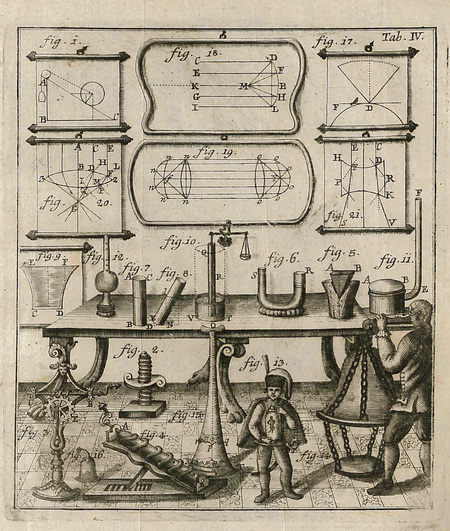 Tab. IV.
fig. 1.
A
B
C
fig. 18.
C
D
E
F
K
M
B
G
H
I
L
fig. 17.
F
D
A
C
E
B
D
H
F
L
G
M
fig.
20.
fig. 19.
E
C
H
D
F
P
R
K
V
fig.
21.
fig. 9.
E
F
C
D
fig. 12.
fig. 7.
A
C
B
D
fig. 8.
N
fig. 10.
V
fig. 6.
S
R
fig. 5.
A
B
fig. 11.
A
B
F
E
fig. 2.
fig. 3.
fig. 4.
A
fig. 15.
fig. 16.
fig. 13.
fig. 14.